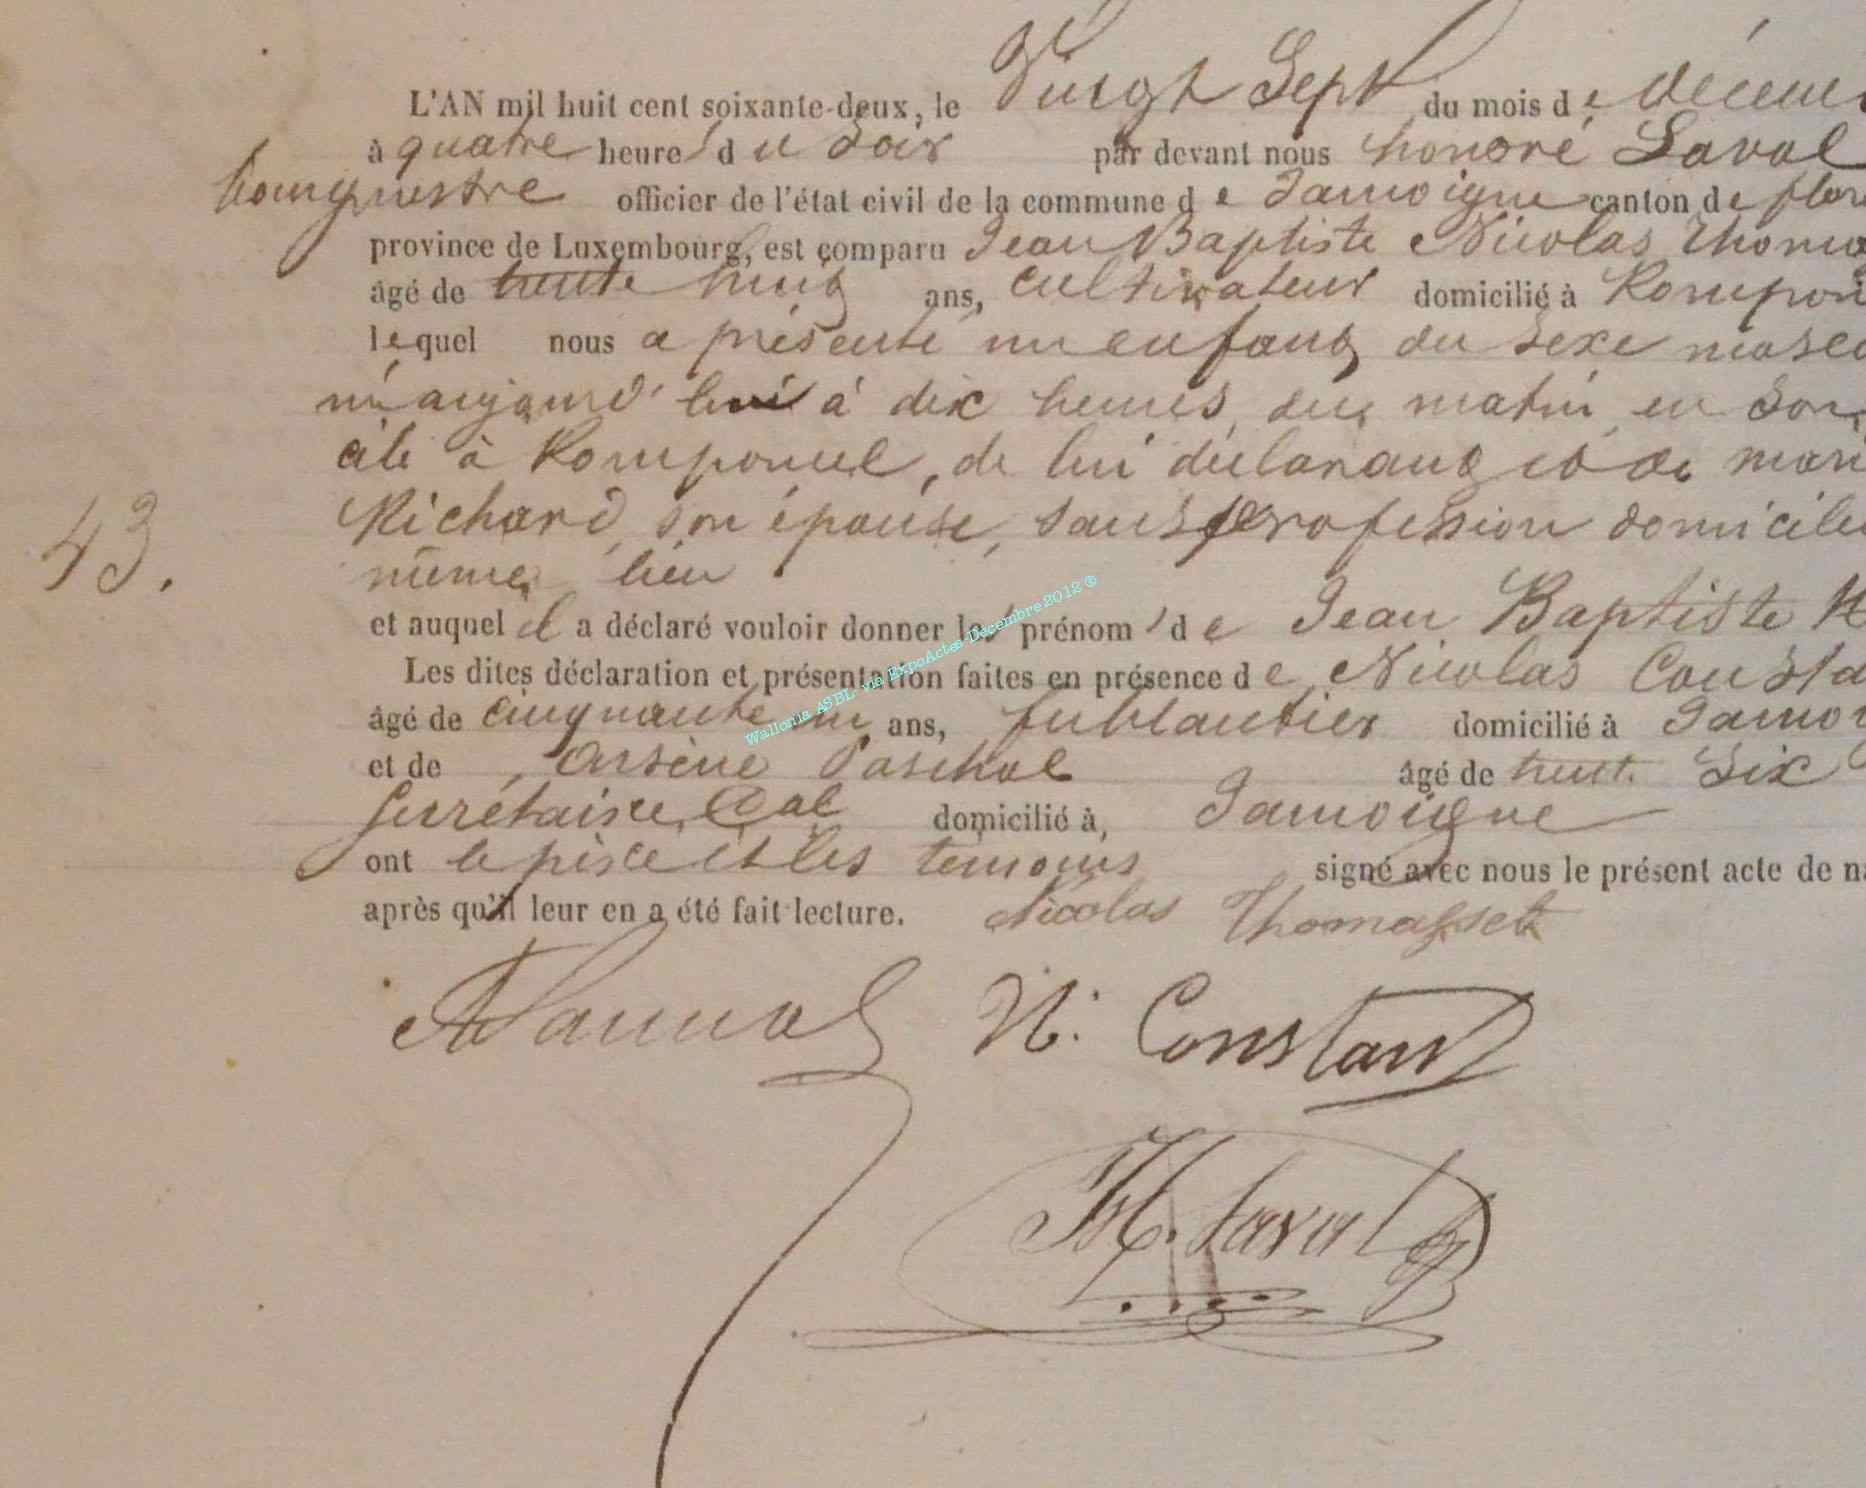 L'AN mil huit cent soixante-deux, le Vingt Sept du mois de décem
à quatre heures du soir par devant nous honoré Laval
bourgmestre officier de l'état civil de la commune de Jamoigne canton de flor
province de Luxembourg, est comparu Jean Baptiste Nicolas Thoma
âgé de trente huit ans, cultivateur domicilié à Rompon
lequel nous a présenté un enfant du sexe mascu
né aujourd'hui à dix heures du matin en son
cile à Romponcel, de lui déclarant et de mari
Richard, son épouse, sans profession domicilié
même lieu
43.
et auquel il a déclaré vouloir donner les prénoms de Jean Baptiste
Les dites déclaration et présentation faites en présence de Nicolas Consta
âgé de cinquante un ans, ferblantier domicilié à Jamoi
et de Arsène Paschal âgé de trente six
secrétaire Cal domicilié à, Jamoigne
ont le père et les témoins signé avec nous le présent acte de n
après qu'il leur en a été fait lecture. Nicolas Thomasset
N. Constant
H. Laval
Wallonia ASBL via ExpoActes Décembre 2012 ®